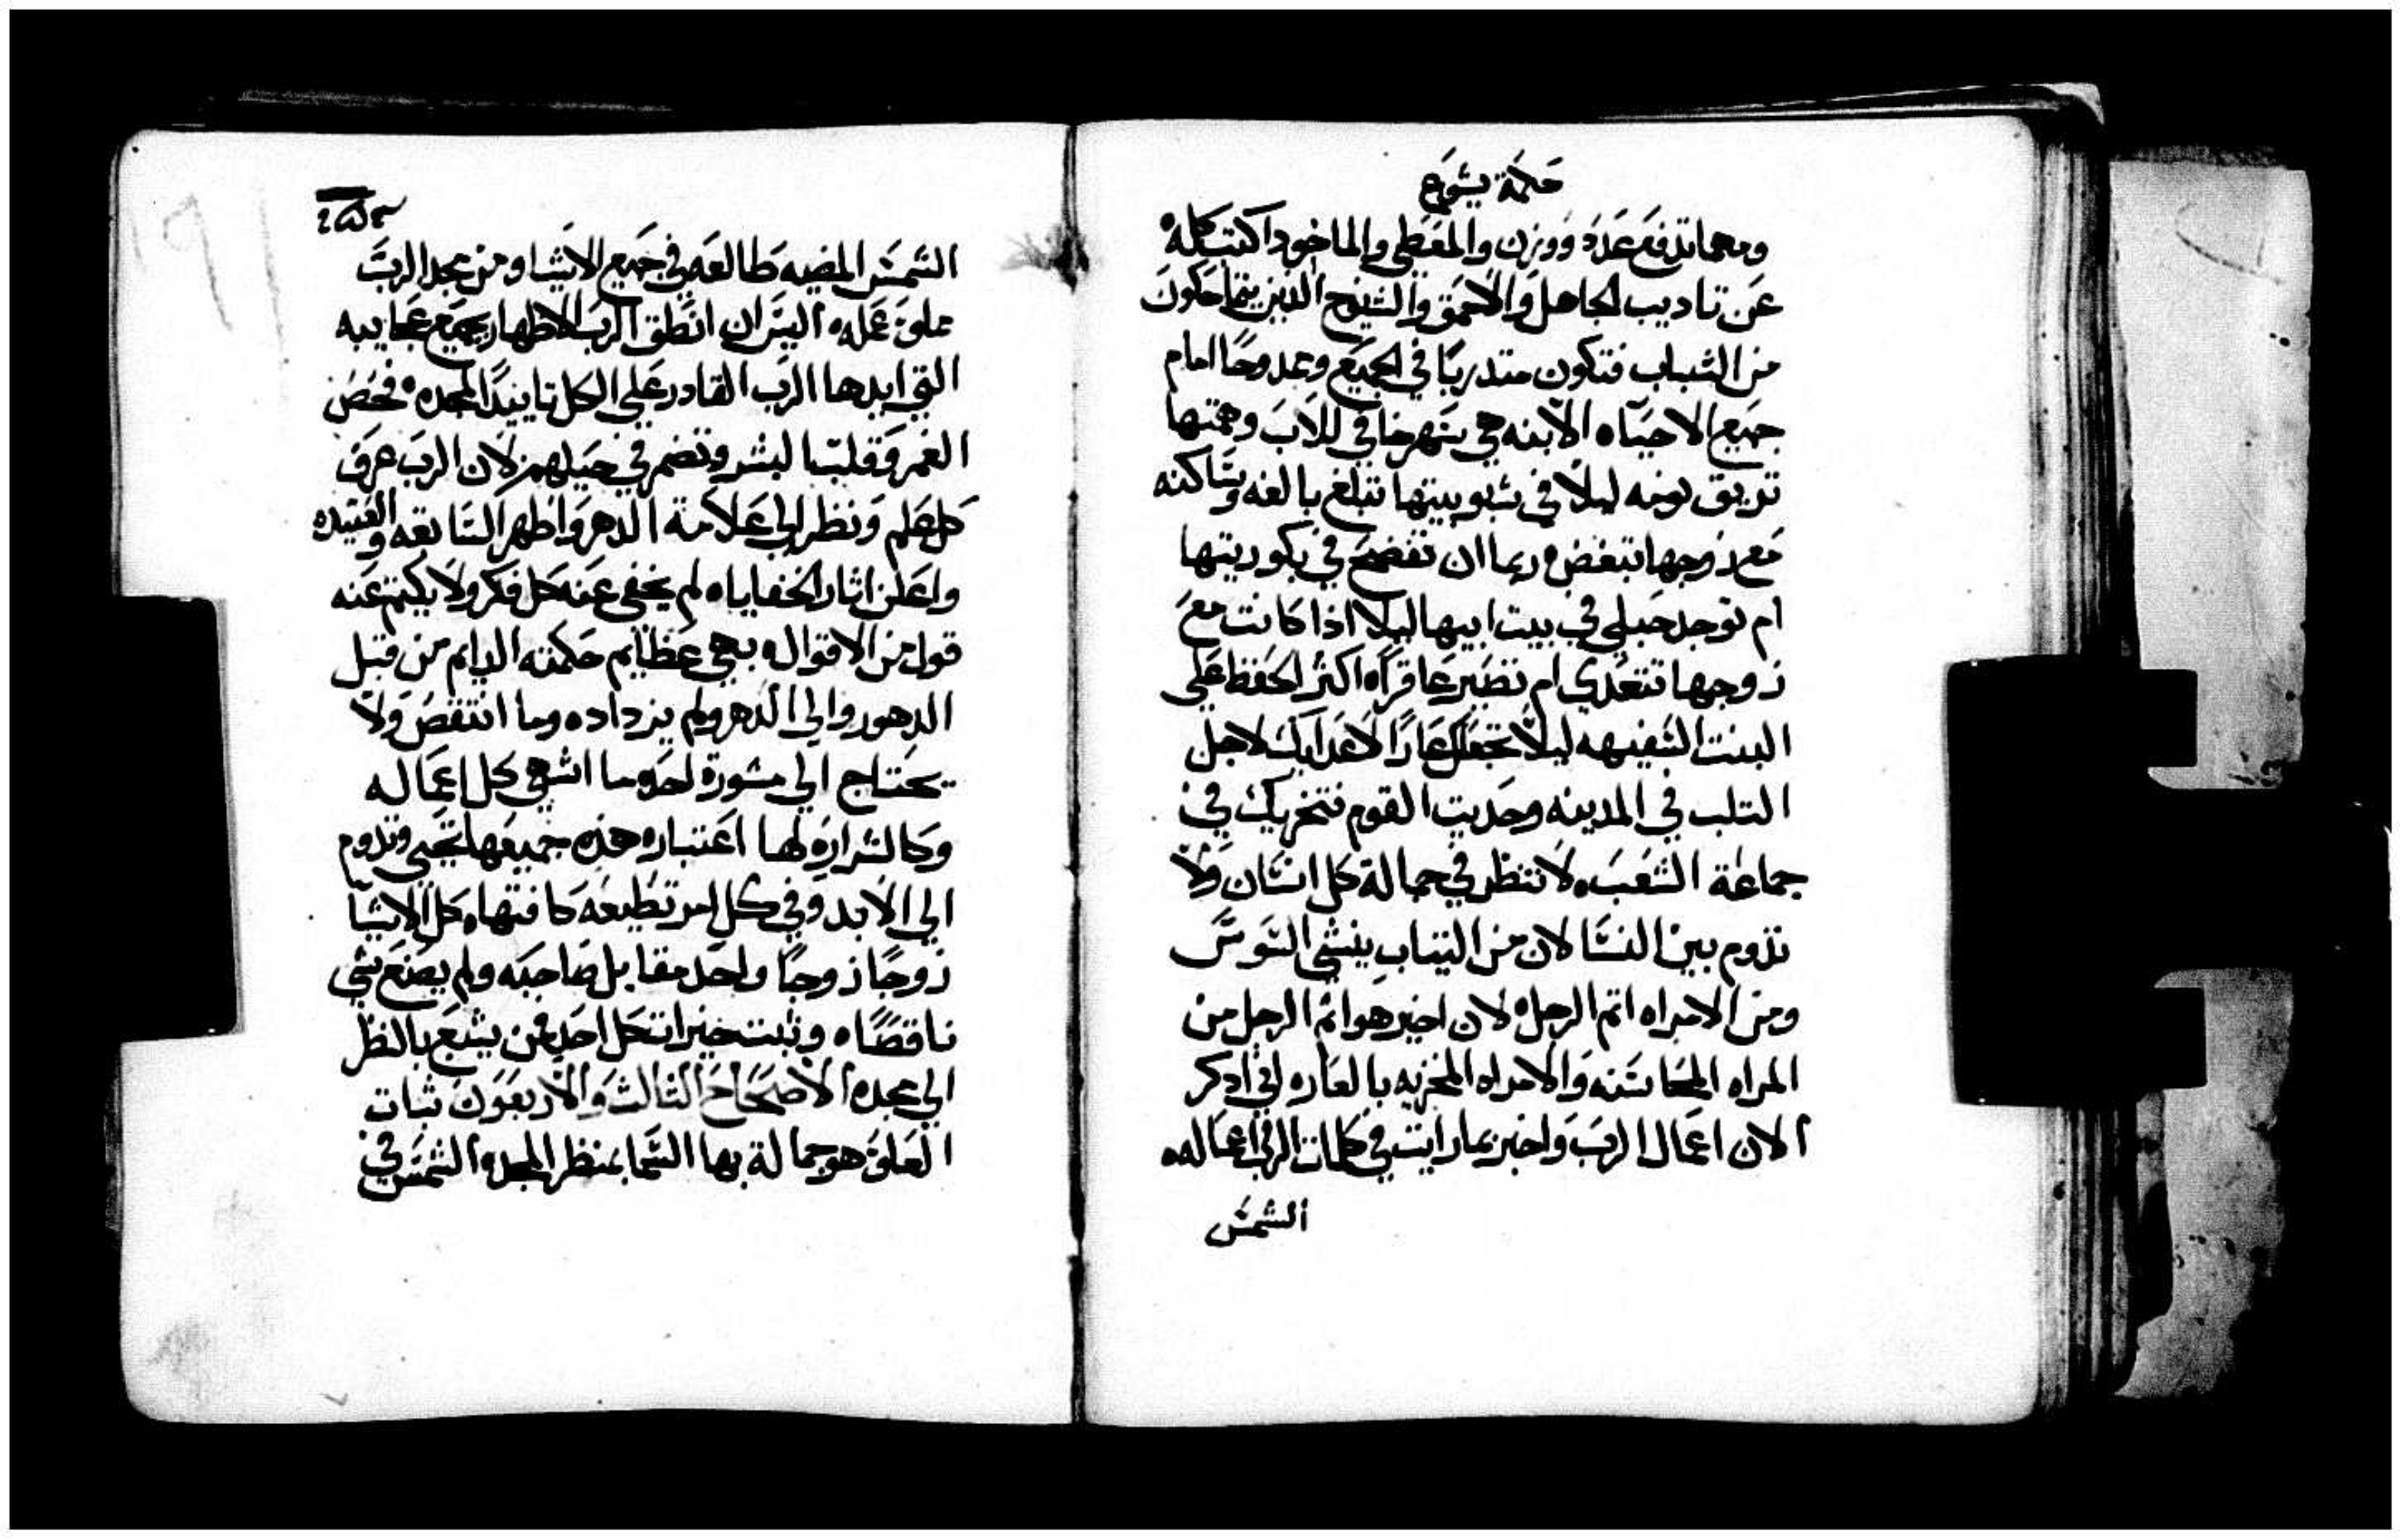 حكمة يشوع
ومهما تدفع عدد ووزن والمعطي والماخود اكتب كله
عن تاديب الجاهل والاحمق والشيوخ الذين يتحاكون
من الشباب فتكون متدربًا في الجميع وممدوحًا امام
جميع الاحياه الابنه هي سهر خافي للاب وهمتها
تريق نومه ليلًا في شبوبيتها تبلغ بالغه وساكنه
مع زوجها تبغض وربما ان تفتضح في بكوريتها
ام توجد حبلي في بيت ابيها ليلا اذا كانت مع
زوجها تتعدي ام تصير عاقراه اكثر الحفظ علي
البنت السفيهه ليلا تجعلك عارًا لاعدايك لاجل
التلب في المدينه وحديث القوم فتخزيك في
جماعة الشعب ٥ لا تنظر في جمالة كل انسان ولا
تدوم بين النسا لان من التياب ينشي السوس
ومن الامراه اثم الرجل ٥ لان اخير هو اثم الرجل من
المراه المحاسنه والامراه المخزيه بالعاره اني ادكر
الان اعمال الرب واخبر بما رايت في كلمات الرب اعماله ٥
الشمس
٢٥٣
الشمس المضيه طالعه في جميع الاشيا ومن مجد الرب
مملو عمله ٥ اليس ان انطق الرب الاطهار بجميع عجايبه
التي ايدها الرب القادر علي الكل تاييدًا لمجده ٥ فحص
الغمر وقلب البشر وتضمر في حيلهم لان الرب عرف
كل علم ونظر الي علامة الدهر واظهر السابقه والعتيده
واعلن اثار الخفاياه لم يخفي عنه كل فكر ولا يكتم عنه
قول من الاقوال ٥ بهي عظايم حكمته الدايم من قبل
الدهور والي الدهر ولم يزداده وما انتقص ولا
يحتاج الي مشورة احد ٥ ما اشهي كل اعماله
وكالشراره لها اعتباره هذه جميعها تحيي وتدوم
الي الابد وفي كل امر تطيعه كافتها ٥ كل الاشيا
زوجًا زوجًا واحد مقابل صاحبه ولم يصنع شي
ناقصًا ٥ وثبت خيرات كل احد فمن يشبع بالنظر
الي مجده الاصحاح الثالث والاربعون ثبات
العلو هو جمالة بها السما بمنظر المجد ٥ الشمس في